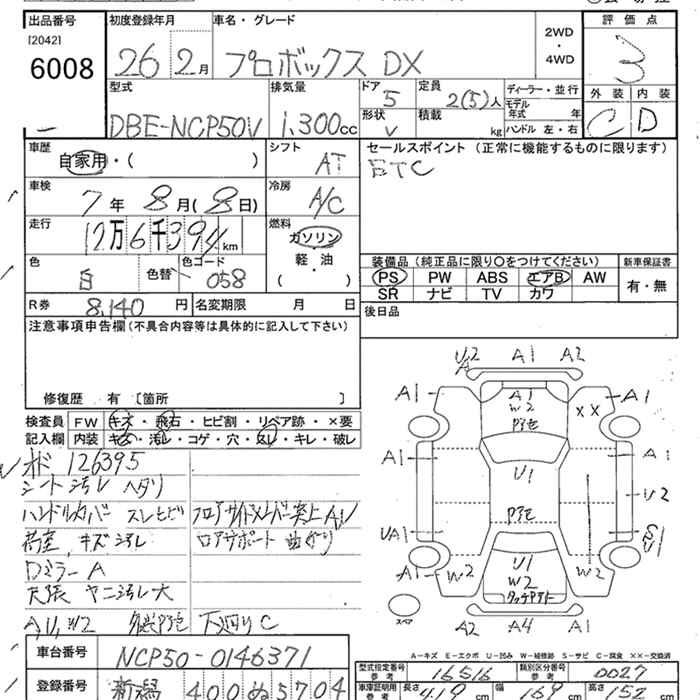 出品番号 初度登録年月 車名・グレード 評価点
[2042]
6008 26 2月 プロボックス DX 2WD・4WD 3
型式 排気量 ドア 定員 ディーラー・並行 外装 内装
DBE-NCP50V 1,300cc 5 2(5)人 モデル年式 年 C D
形状 V 積載 kg ハンドル 左・右
車歴 自家用・( ) シフト AT セールスポイント (正常に機能するものに限ります)
ETC
車検 7年 8月(8日) 冷房 A/C
走行 12万6千394km 燃料 ガソリン
軽・油
( )
色 白 色替 色コード 058
装備品 (純正品に限り○をつけてください) 新車保証書
PS PW ABS エアB AW 有・無
SR ナビ TV カワ
R券 8,140円 名変期限 月 日 後日品
注意事項申告欄 (不具合内容等は具体的に記入して下さい)
修復歴 有 [箇所 ]
検査員 FW キズ・飛石・ヒビ割・リペア跡・×要
記入欄 内装 キズ・汚レ・コゲ・穴・スレ・キレ・破レ
126395
シート汚レ ヘタリ
ハンドルカバー スレヒビ
荷室 キズ汚レ
ロアサポート 曲がり
Dミラー A
天張 ヤニ汚レ大
A,U,W2 下廻りC
U2 A A1 A2
A1 A1 W2 XX A1
A1 U1 A1
U2
UA1
A1 W2 U1 W2 W2
スペア
A2 A4 A1
A-キズ E-エクボ U-凹み W-補修跡 S-サビ C-腐食 XX-交換済
車台番号 NCP50-0146371
型式指定番号 参考 16516 類別区分番号 参考 0027
登録番号 新潟 400 ぬ 5704
車庫証明用 参考 長さ 419cm 幅 169cm 高さ 152cm